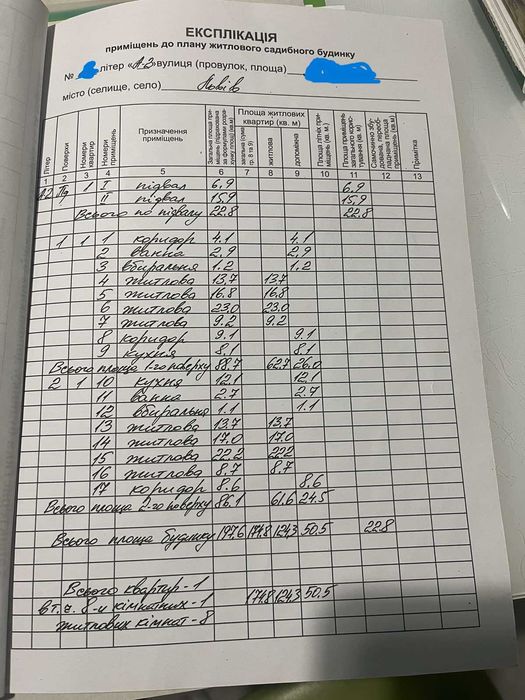 ЕКСПЛІКАЦІЯ
приміщень до плану житлового садибного будинку
№ літер «А-3 вулиця (провулок, площа)
місто (селище, село) Львів
Літер Поверхи Номери квартир Номери приміщень Призначення приміщень Загальна площа приміщень (підрахована за формулами розрахунку площі) (кв.м) Площа житлових квартир (кв. м) загальна (сума гр. 8 та 9) житлова допоміжна Площа літніх приміщень (кв. м) Площа приміщень загального користування (кв. м) Самочинно збудована, переобладнана площа приміщень (кв.м) Примітка
1 2 3 4 5 6 7 8 9 10 11 12 13
А-2 Пд 1 I підвал 6,9 6,9
II підвал 15,9 15,9
Всього по підвалу 22.8 22.8
1 1 1 коридор 4.1 4.1
2 ванна 2,9 2,9
3 вбиральня 1.2 1.2
4 житлова 13,7 13,7
5 житлова 16.8 16.8
6 житлова 23.0 23.0
7 житлова 9.2 9.2
8 коридор 9.1 9.1
9 кухня 8,1 8.1
Всього площа 1-го поверху 88.7 62.7 26.0
2 1 10 кухня 12.1 12.1
11 ванна 2.7 2.7
12 вбиральня 1.1 1.1
13 житлова 13.7 13.7
14 житлова 17.0 17.0
15 житлова 22,2 22.2
16 житлова 8.7 8.7
17 коридор 8.6 8.6
Всього площа 2-го поверху 86.1 61,6 24.5
Всього площа будинку 197.6 174.8 124.3 50.5 22.8
Всього квартир - 1
в т.ч. 8-и кімнатних - 1 174.8 124.3 50.5
житлових кімнат - 8